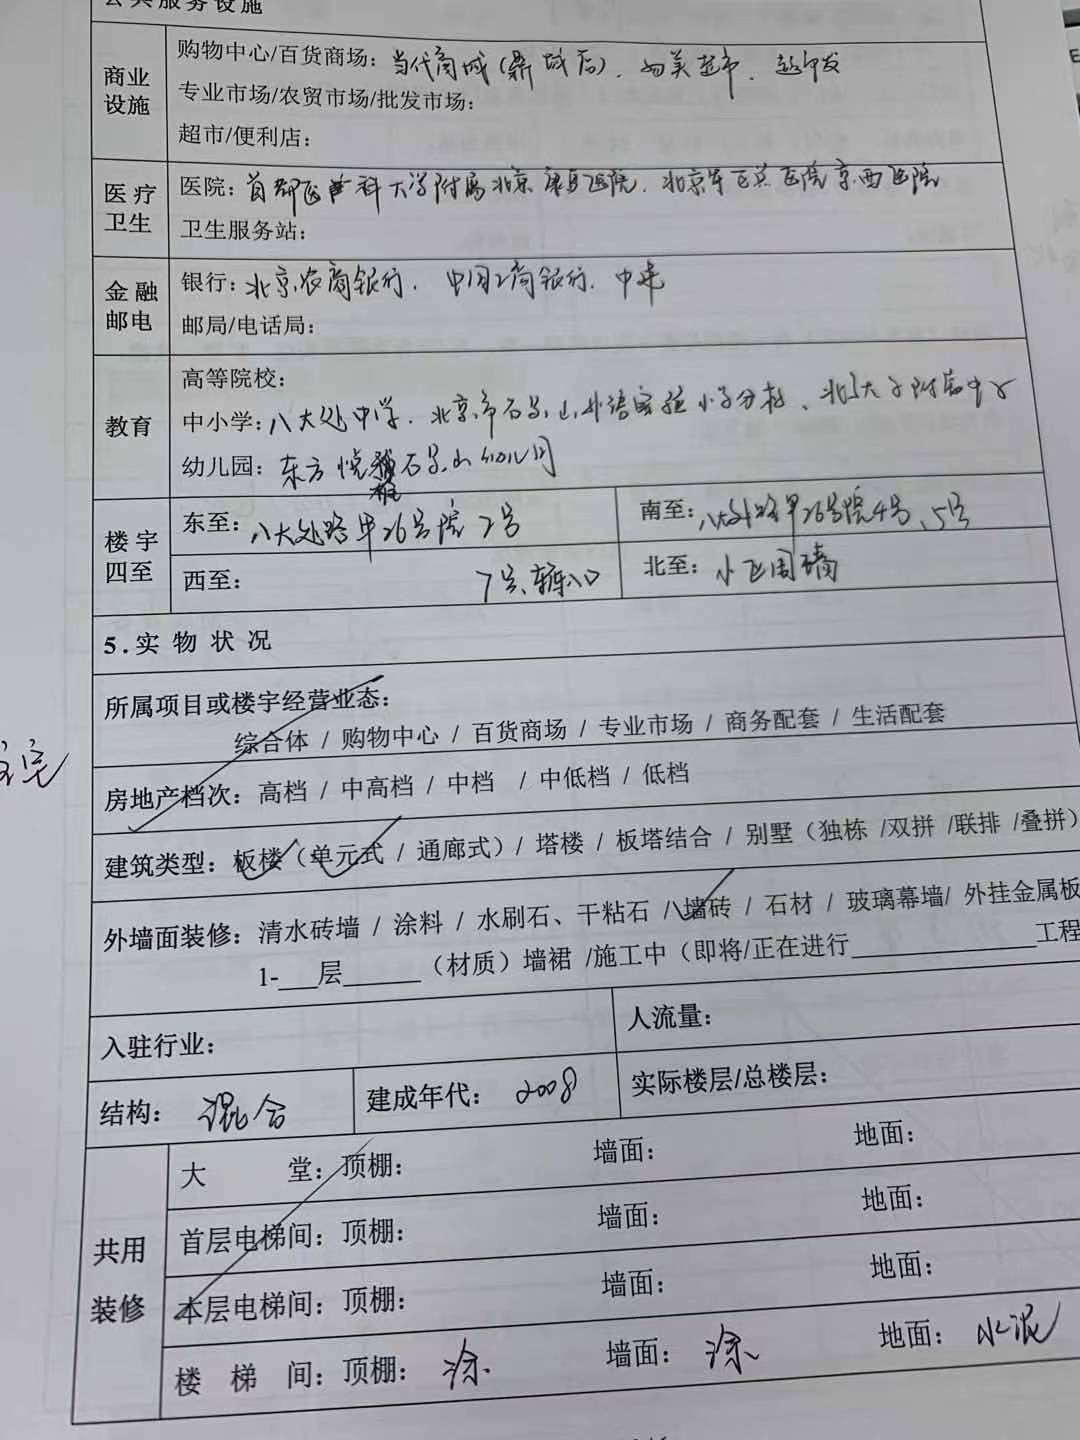 公共服务设施
商业设施
购物中心/百货商场：当代商城（鼎城店）、物美超市、超市发
专业市场/农贸市场/批发市场：
超市/便利店：
医疗卫生
医院：首都医科大学附属北京康复医院、北京军区总医院京西医院
卫生服务站：
金融邮电
银行：北京农商银行、中国工商银行、中
邮局/电话局：
教育
高等院校：
中小学：八大处中学、北京市石景山外语实验小学分校、北大附中
幼儿园：东方悦 石景山幼儿园
楼宇四至
东至：八大处路甲26号院7号
南至：八大处路甲26号院4号、5号
西至：7号、车库入口
北至：小区围墙
5.实物状况
所属项目或楼宇经营业态：
综合体 / 购物中心 / 百货商场 / 专业市场 / 商务配套 / 生活配套
住宅
房地产档次：高档 / 中高档 / 中档 / 中低档 / 低档
建筑类型：板楼（单元式 / 通廊式）/ 塔楼 / 板塔结合 / 别墅（独栋 /双拼 /联排 /叠拼）
外墙面装修：清水砖墙 / 涂料 / 水刷石、干粘石 / 墙砖 / 石材 / 玻璃幕墙/ 外挂金属板
1-___层______（材质）墙裙 /施工中（即将/正在进行______________工程
入驻行业：
人流量：
结构：混合
建成年代：2008
实际楼层/总楼层：
共用装修
大堂：顶棚： 墙面： 地面：
首层电梯间：顶棚： 墙面： 地面：
本层电梯间：顶棚： 墙面： 地面：
楼梯间：顶棚：涂 墙面：涂 地面：水泥